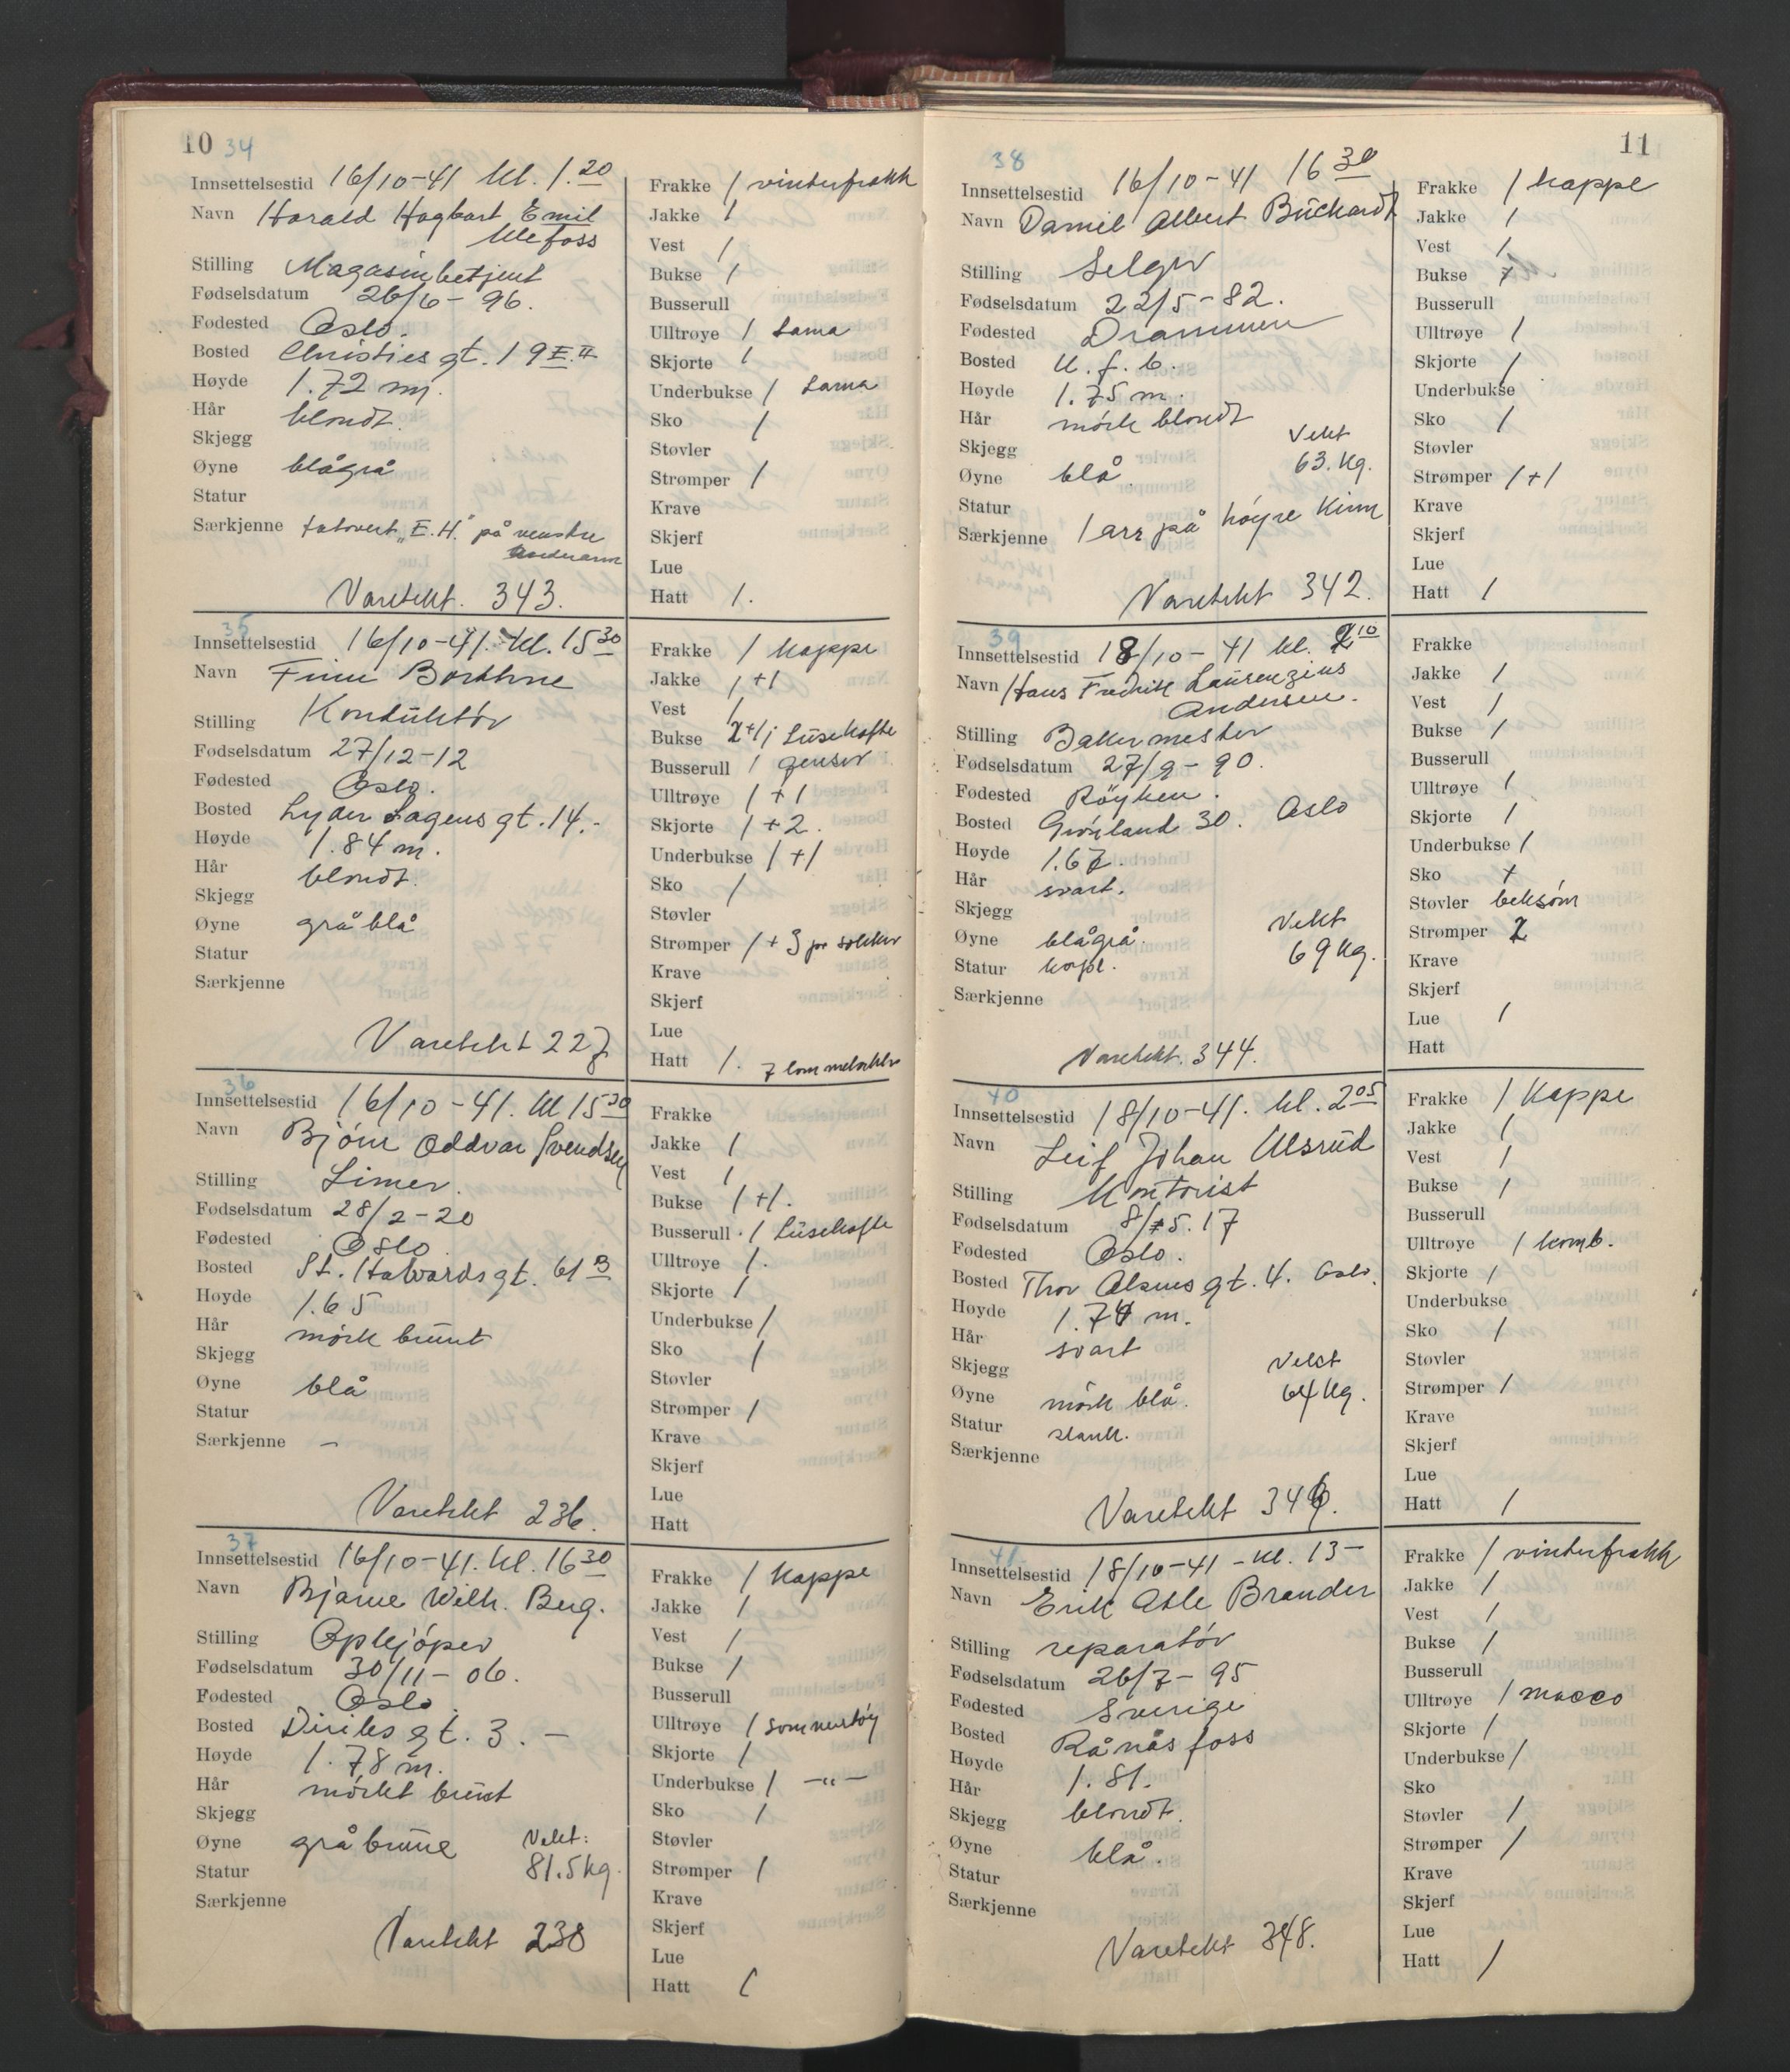 10 34
Innsettelsestid 16/10-41 kl. 1.20
Navn Harald Hagbart Emil
Ulefoss
Stilling Magasinbetjent
Fødselsdatum 26/6-96.
Fødested Oslo.
Bosted Christies gt. 19 E. II
Høyde 1.72 m.
Hår blondt.
Skjegg
Øyne blågrå
Statur
Særkjenne tatovert „E.H." på venstre
underarm
Varetekt. 343.
Frakke / vinterfrakk
Jakke /
Vest /
Bukse /
Busserull
Ulltrøye / Lama
Skjorte /
Underbukse / Lama
Sko /
Støvler
Strømper /
Krave
Skjerf
Lue
Hatt /.
35
Innsettelsestid 16/10-41. kl. 15 30
Navn Finn Borthne
Stilling Konduktør
Fødselsdatum 27/12-12
Fødested Oslo.
Bosted Lyder Sagens gt. 14.-
Høyde 1.84 m.
Hår blondt.
Skjegg
Øyne grå blå
Statur
Særkjenne
Varetekt 227
Frakke / kappe
Jakke / +1
Vest /
Bukse 2+1; Lusekofte
Busserull / genser
Ulltrøye / +1
Skjorte / +2.
Underbukse / +/
Sko /
Støvler
Strømper / + 3 par sokker
Krave
Skjerf
Lue
Hatt /. 7 lommetørkler
36
Innsettelsestid 16/10-41. kl 15 30
Navn Bjørn Oddvar Svendsen
Stilling Limer.
Fødselsdatum 28/2-20
Fødested Oslo.
Bosted St. Halvards gt. 61 B
Høyde 1.65
Hår mørk brunt
Skjegg
Øyne blå
Statur
Særkjenne -
Varetekt 236.
Frakke
Jakke /
Vest /
Bukse / +/.
Busserull . / Lusekofte
Ulltrøye /.
Skjorte /
Underbukse /
Sko /
Støvler
Strømper /
Krave
Skjerf
Lue
Hatt
37
Innsettelsestid 16/10-41. kl. 16 30
Navn Bjarne Wilh. Berg.
Stilling Opkjøper
Fødselsdatum 30/11-06.
Fødested Oslo.
Bosted Diriks gt. 3. -
Høyde 1.78 m.
Hår mørkt brunt
Skjegg
Øyne grå brune Vekt:
Statur 81.5 kg.
Særkjenne
Varetekt 238
Frakke / kappe
Jakke /
Vest /
Bukse /
Busserull
Ulltrøye / sommertøy
Skjorte /
Underbukse / -"-
Sko /
Støvler
Strømper /
Krave
Skjerf
Lue
Hatt /
11
38
Innsettelsestid 16/10-41 16 30
Navn Daniel Albert Buchardt
Stilling Selger
Fødselsdatum 22/5-82.
Fødested Drammen
Bosted U. f. b.
Høyde 1.75 m.
Hår mørk blondt
Skjegg Vekt
Øyne blå. 63. kg.
Statur
Særkjenne / arr på høyre Kinn
Varetekt 342.
Frakke / kappe
Jakke /
Vest /
Bukse 7
Busserull
Ulltrøye /
Skjorte /
Underbukse
Sko /
Støvler
Strømper / +/
Krave
Skjerf
Lue
Hatt /
39
Innsettelsestid 18/10-41 kl. 2 10
Navn Hans Fredrik Laurenzius
Andersen.
Stilling Bakermester
Fødselsdatum 27/9-90.
Fødested Røyken.
Bosted Grønland 30. Oslo
Høyde 1.67.
Hår svart.
Skjegg
Øyne blågrå. Vekt
Statur korpl. 69 kg.
Særkjenne
Varetekt. 344.
Frakke
Jakke /
Vest /
Bukse /
Busserull
Ulltrøye /
Skjorte /
Underbukse /
Sko +
Støvler beksøm
Strømper 2
Krave
Skjerf
Lue /
Hatt
40
Innsettelsestid 18/10-41. kl. 2 05
Navn Leif Johan Ulsrud
Stilling Kontorist
Fødselsdatum 8/5. 17
Fødested Oslo.
Bosted Thor Olsens gt. 4. Oslo.
Høyde 1.74 m.
Hår svart
Skjegg Vekt
Øyne mørk blå. 64 kg.
Statur slank.
Særkjenne
Varetekt 346.
Frakke / Kappe
Jakke /
Vest /
Bukse /
Busserull
Ulltrøye / komb.
Skjorte /
Underbukse
Sko /
Støvler
Strømper /
Krave
Skjerf
Lue
Hatt /
41.
Innsettelsestid 18/10-41 - kl. 13-
Navn Erik Atle Brander
Stilling reparatør
Fødselsdatum 26/7-95
Fødested Sverige
Bosted Rånåsfoss
Høyde 1.81.
Hår blondt.
Skjegg
Øyne blå.
Statur
Særkjenne
Varetekt 348.
Frakke / vinterfrakk
Jakke /
Vest /
Bukse /
Busserull
Ulltrøye / macco
Skjorte /
Underbukse /
Sko
Støvler /
Strømper /
Krave
Skjerf
Lue
Hatt /